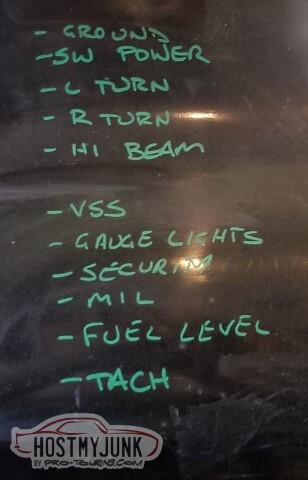 - GROUND
- SW POWER
- L TURN
- R TURN
- HI BEAM
- VSS
- GAUGE LIGHTS
- SECURITY
- MIL
- FUEL LEVEL
- TACH
HOSTMYJUNK
BY PRO-TOURING.COM